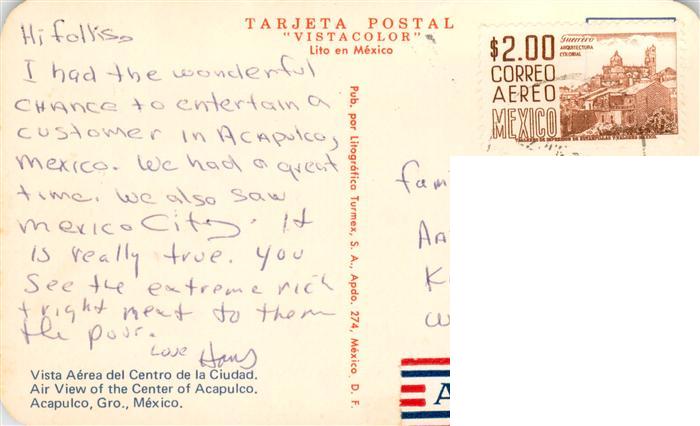 TARJETA POSTAL
"VISTACOLOR"
Lito en México
Hi follis
I had the wonderful
CHANCE to entertain a
customer in ACAPULCO,
mexico. We had a great
time. We also saw
mexico City. It
is really true. you
see the extreme rich
+ right next to them
the poor.
Love Hans
Vista Aérea del Centro de la Ciudad.
Air View of the Center of Acapulco.
Acapulco, Gro., México.
Pub. por Litográfica Turmex, S. A., Apdo. 274, México, D. F.
Guerrero
ARQUITECTURA
COLONIAL
$2.00
CORREO
AEREO
MEXICO
fam
AA
K
W
A